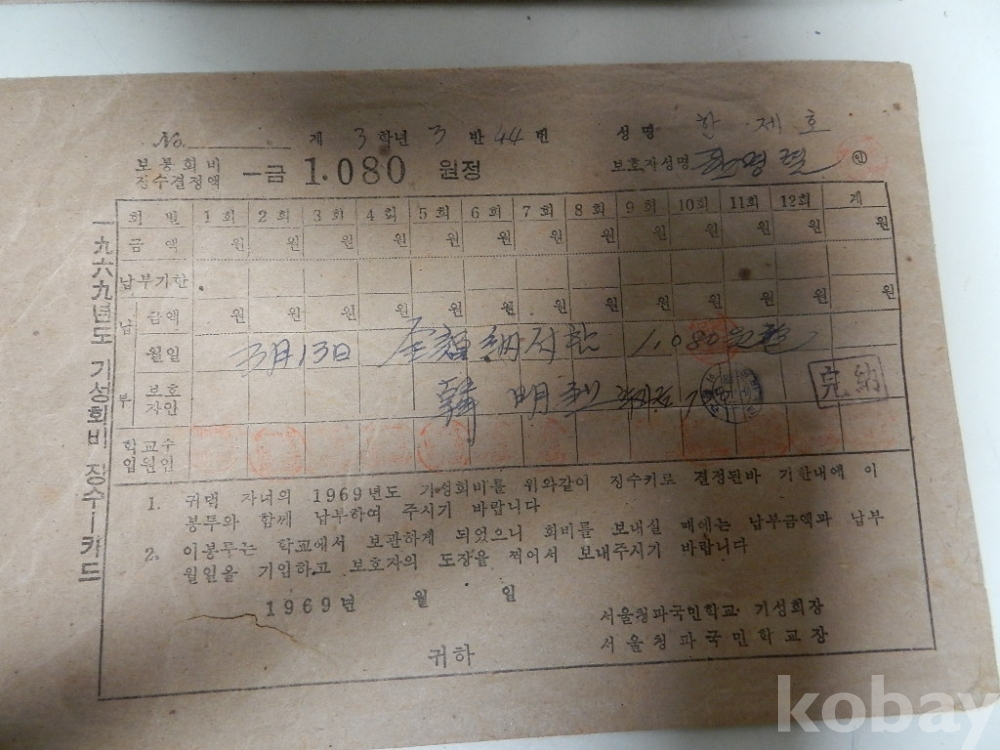 No. 제 3 학년 3 반 44 번 성명 한제호
보통회비
징수결정액 一금 1.080 원정 보호자성명 한명렬 인
一九六九년도 기성회비 징수카드
회별 1회 2회 3회 4회 5회 6회 7회 8회 9회 10회 11회 12회 계
금액 원 원 원 원 원 원 원 원 원 원 원 원 원
납부기한
납부
금액 원 원 원 원 원 원 원 원 원 원 원 원 원
월일 3月 13日 全額 1.080
보호자인 韓明 完納
학교수입원인
1. 귀댁 자녀의 1969년도 기성회비를 위와같이 징수키로 결정된바 기한내에 이
봉투와 함께 납부하여 주시기 바랍니다
2. 이봉투는 학교에서 보관하게 되었으니 회비를 보내실 때에는 납부금액과 납부
월일을 기입하고 보호자의 도장을 찍어서 보내주시기 바랍니다
1969년 월 일
서울청파국민학교 기성회장
서울청파국민학교장
귀하
kobay